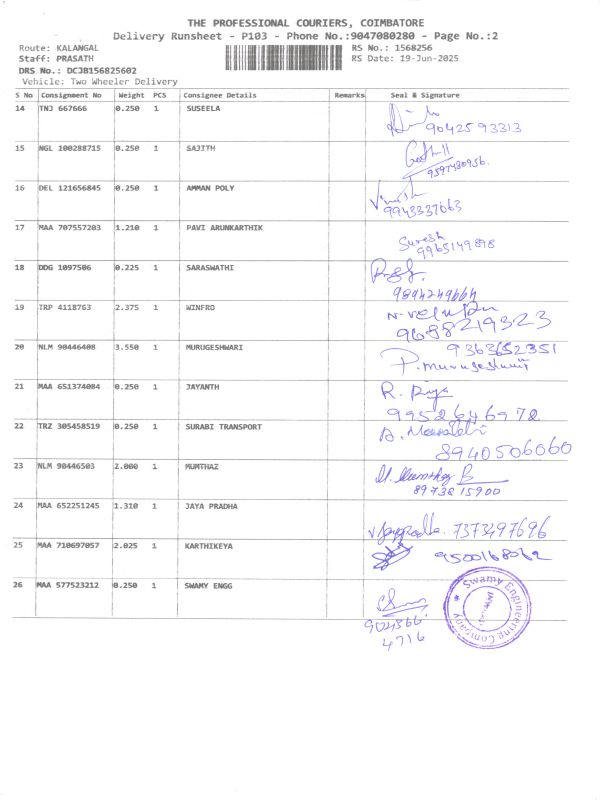 THE PROFESSIONAL COURIERS, COIMBATORE
Delivery Runsheet - P103 - Phone No.:9047080280 - Page No.:2
Route: KALANGAL RS No.: 1568256
Staff: PRASATH RS Date: 19-Jun-2025
DRS No.: DCJB156825602
Vehicle: Two Wheeler Delivery
S No Consignment No Weight PCS Consignee Details Remarks Seal & Signature
14 TNJ 667666 0.250 1 SUSEELA
9042593313
15 NGL 100288715 0.250 1 SAJITH
9597480956.
16 DEL 121656845 0.250 1 AMMAN POLY
9943337663
17 MAA 707557203 1.210 1 PAVI ARUNKARTHIK
Suresh
9965149898
18 DDG 1097506 0.225 1 SARASWATHI
9894249664
19 TRP 4118763 2.375 1 WINFRO
9688219323
20 NLM 90446408 3.550 1 MURUGESHWARI 9363652351
P. Murugeshwari
21 MAA 651374084 0.250 1 JAYANTH R. Priya
9952646972
22 TRZ 305458519 0.250 1 SURABI TRANSPORT
8940506060
23 NLM 90446503 2.000 1 MUMTHAZ
8973815900
24 MAA 652251245 1.310 1 JAYA PRADHA
V. Jayapradha. 7373497696
25 MAA 710697057 2.025 1 KARTHIKEYA 9500168062
26 MAA 577523212 0.250 1 SWAMY ENGG
Swamy Engineering Company
9024366
4716